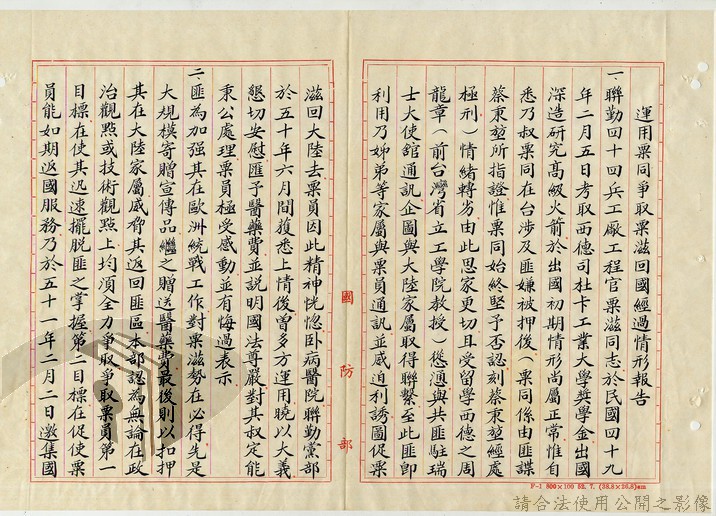 運用粟同爭取粟滋回國經過情形報告
一、聯勤四十四兵工廠工程官粟滋同志於民國四十九
年二月五日考取西德司杜卡工業大學獎學金出國
深造研究高級火箭於出國初期情形尚屬正常惟自
悉乃叔粟同在台涉及匪嫌被押後（粟同係由匪諜
蔡秉堃所指證惟粟同始終堅予否認刻蔡秉堃經處
極刑）情緒轉劣由此思家更切且受留學西德之周
龍章（前台灣省立工學院教授）慫湧與共匪駐瑞
士大使館通訊企圖與大陸家屬取得聯繫至此匪即
利用乃姊弟等家屬與粟員通訊並威迫利誘圖促粟
國防部
滋回大陸去粟員因此精神恍惚卧病醫院聯勤黨部
於五十年六月間獲悉上情後曾多方運用曉以大義
懇切安慰匯予醫藥費並說明國法尊嚴對其叔定能
秉公處理粟員極受感動並有悔過表示
二、匪為加强其在歐洲統戰工作對粟滋勢在必得先是
大規模寄贈宣傳品繼之贈送醫藥費最後則以扣押
其在大陸家屬威脅其返回匪區本部認為無論在政
治觀點或技術觀點上均須全力爭取爭取粟員第一
目標在使其迅速擺脱匪之掌握第二目標在促使粟
員能如期返國服務乃於五十一年二月二日邀集國
F-1 800×100 52. 7. (38.8×26.6)cm
請合法使用公開之影像